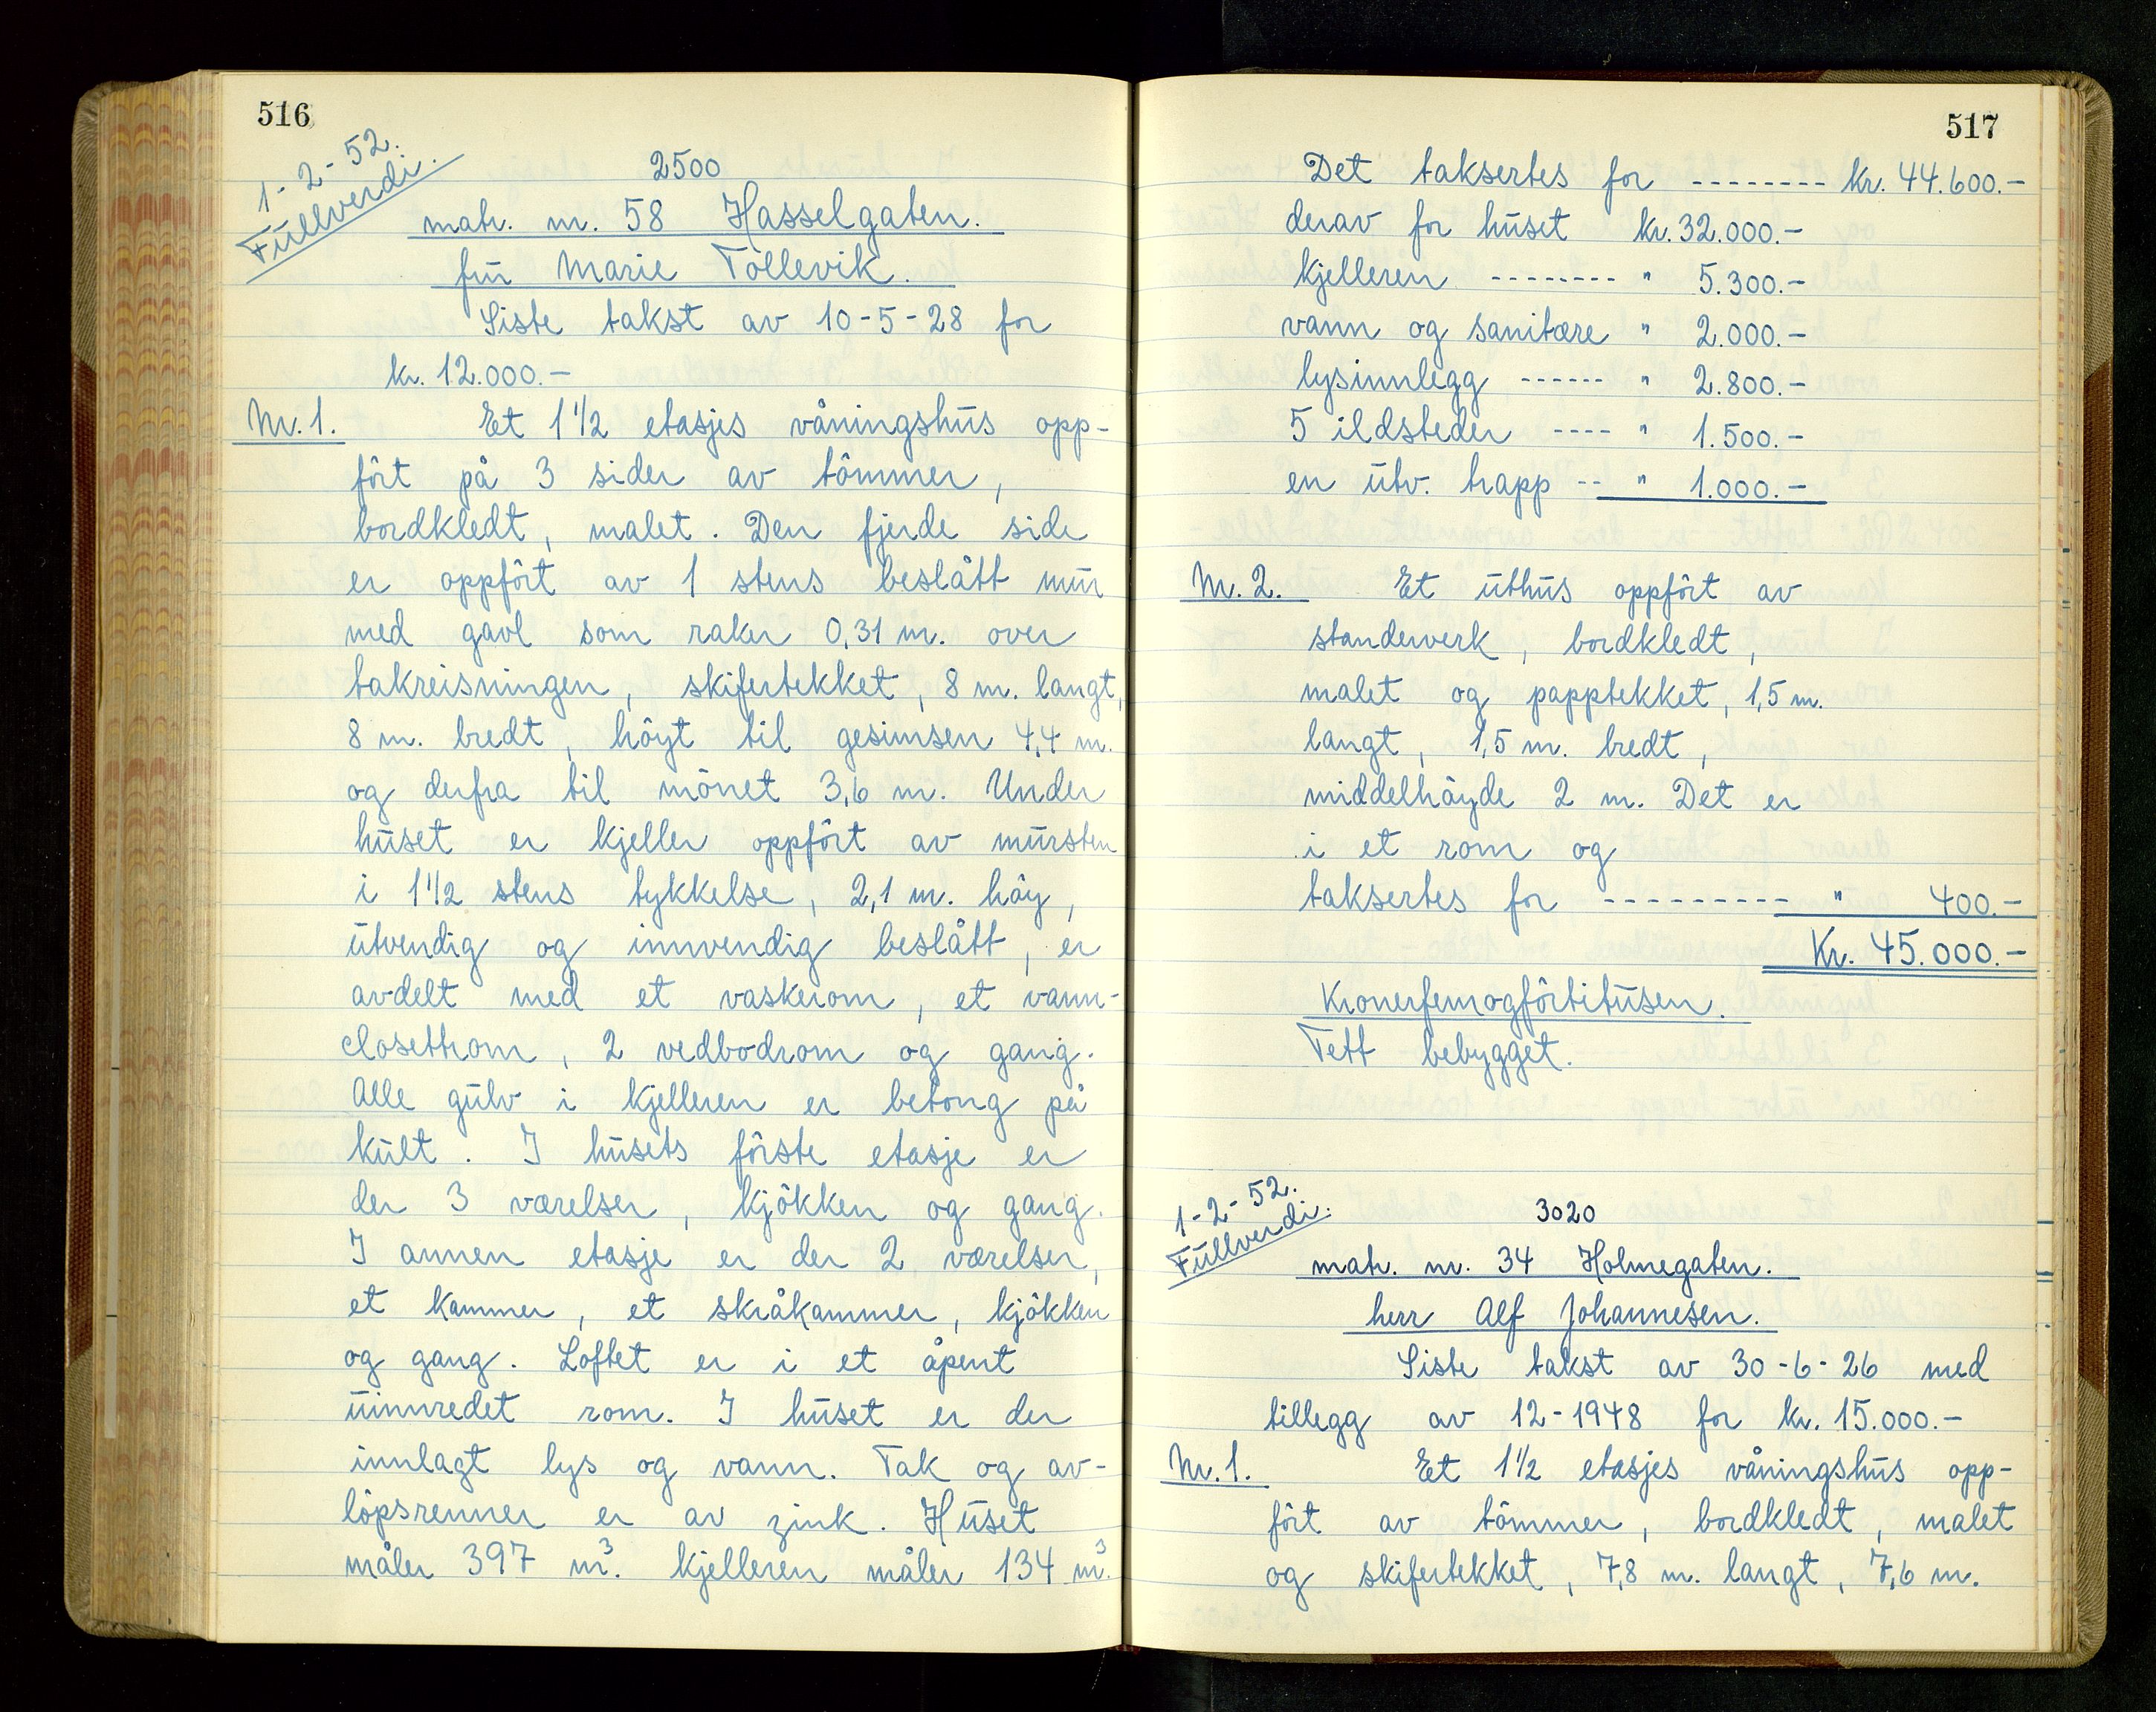 516
1-2-52.
Fullverdi.
2500
matr. nr. 58 Hasselgaten.
fru Marie Tollevik.
Siste takst av 10-5-28 for
kr. 12.000.-
Nr. 1. Et 1 1/2 etasjes våningshus opp-
ført på 3 sider av tømmer,
bordkledt, malet. Den fjerde side
er oppført av 1 stens beslått mur
med gavl som raker 0,31 m. over
takreisningen, skifertekket, 8 m. langt,
8 m. bredt, høyt til gesimsen 4,4 m.
og derfra til mønet 3,6 m. Under
huset er kjeller oppført av mursten
i 1 1/2 stens tykkelse, 2,1 m. høy,
utvendig og innvendig beslått, er
avdelt med et vaskerom, et vann-
closettrom, 2 vedbodrom og gang.
Alle gulv i kjelleren er betong på
kult. I husets første etasje er
der 3 værelser, kjøkken og gang.
I annen etasje er der 2 værelser,
et kammer, et skråkammer, kjøkken
og gang. Loftet er i et åpent
uinnredet rom. I huset er der
innlagt lys og vann. Tak og av-
løpsrenner er av zink. Huset
måler 397 m³. kjelleren måler 134 m³.
517
Det taksertes for -------- kr. 44.600.-
derav for huset kr. 32.000.-
kjelleren -------- " 5.300.-
vann og sanitære " 2.000.-
lysinnlegg ------ " 2.800.-
5 ildsteder ---- " 1.500.-
en utv. trapp -- " 1.000.-
Nr. 2. Et uthus oppført av
standerverk, bordkledt,
malet og papptekket, 1,5 m.
langt, 1,5 m. bredt,
middelhøyde 2 m. Det er
i et rom og
taksertes for ---------- " 400.-
Kr. 45.000.-
Kronerfemogførtitusen.
Tett bebygget.
1-2-52.
Fullverdi.
3020
matr. nr. 34 Holmegaten.
herr Alf Johannesen.
Siste takst av 30-6-26 med
tillegg av 12-1948 for kr. 15.000.-
Nr. 1. Et 1 1/2 etasjes våningshus opp-
ført av tømmer, bordkledt, malet
og skifertekket, 7,8 m. langt, 7,6 m.